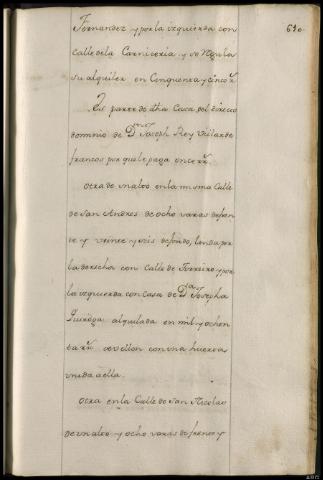 Fernandez y por la izquierda con
630
Calle dela Carniceria y se regula
su alquiler en Cinquenta y cinco rs
Es parte de dha Casa del directo
dominio de Dn Joseph Rey Villarde
francos por que le paga once rrs
otra de un alto en la misma Calle
de San Andres de ocho varas de fren
te y veinte y seis de fondo, linda por
la derecha con Calle de Torreiro y por
la izquierda con Casa de Da Josepha
Quiroga alquilada en mil y ochen
ta rrs de vellon con una huerta
unida a ella.
otra en la Calle de San Nicolas
de un alto y ocho varas de frente y